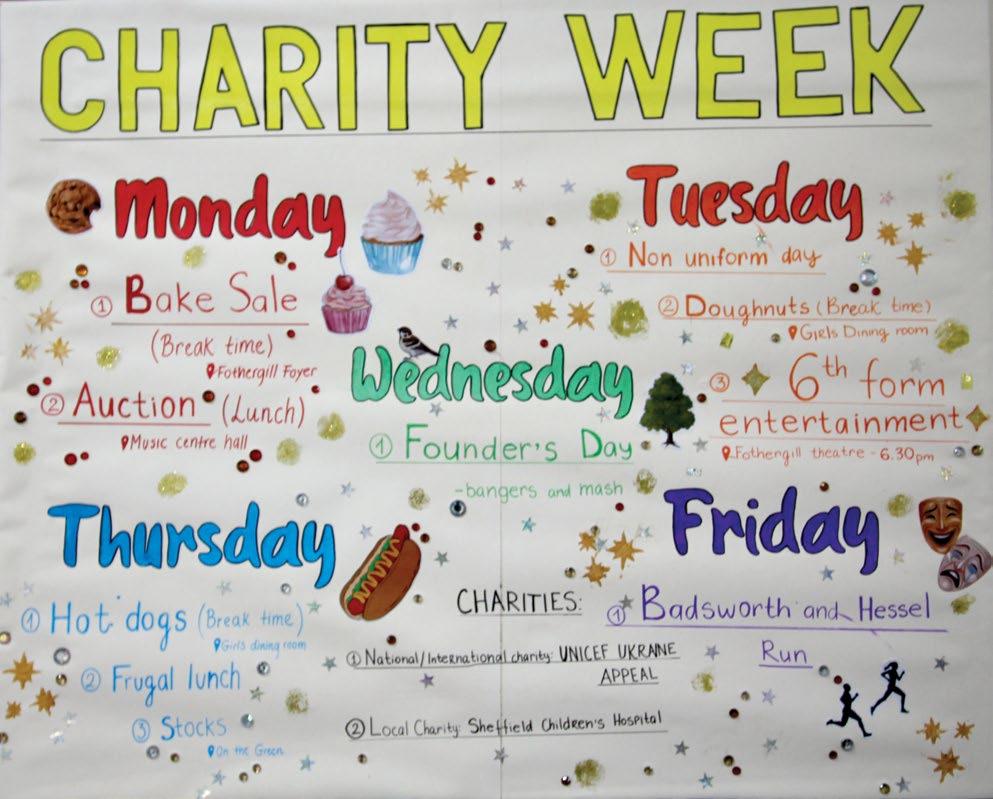 CHARITY WEEK
Monday
① Bake Sale
(Break time)
Fothergill Foyer
② Auction (Lunch)
Music centre hall
Tuesday
① Non uniform day
② Doughnuts (Break time)
Girls Dining room
③ 6th form
entertainment
Fothergill theatre - 6.30pm
Wednesday
① Founder's Day
- bangers and mash
Thursday
① Hot dogs (Break time)
Girls dining room
② Frugal lunch
③ Stocks
On the Green
CHARITIES:
① National/International charity: UNICEF UKRAINE
APPEAL
② Local Charity: Sheffield Children's Hospital
Friday
① Badsworth and Hessel
Run